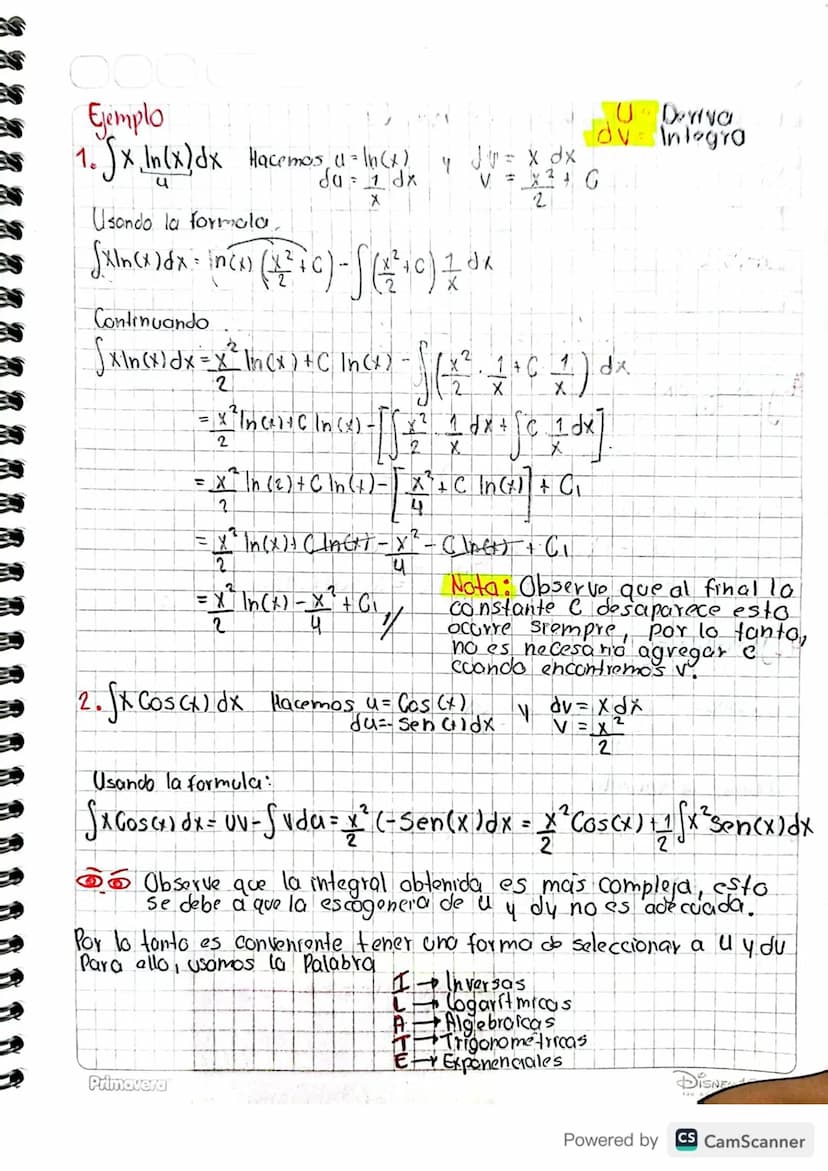 Ejemplo
U = Deriva
dv = Integro
1. ∫x ln(x) dx Hacemos u = ln(x) y dv = x dx
u du = 1/x dx v = x²/2 + C
Usando la formula.
∫xln(x)dx = ln(x) (x²/2 + C) - ∫(x²/2 + C) 1/x dx
Continuando
∫xln(x)dx = x²/2 ln(x) + C ln(x) - ∫(x²/2 · 1/x + C 1/x) dx
= x²/2 ln(x) + C ln(x) - [∫x²/2 · 1/x dx + ∫C 1/x dx]
= x²/2 ln(2) + C ln(x) - [x²/4 + C ln(x)] + C₁
= x²/2 ln(x) + C ln(x) - x²/4 - C ln(x) + C₁
= x²/2 ln(x) - x²/4 + C₁ //
Nota: Observe que al final la
constante C desaparece esto
ocurre siempre, por lo tanto,
no es necesario agregar c
cuando encontremos v.
2. ∫x Cos(x) dx Hacemos u = Cos(x) y dv = x dx
du = - sen(x) dx v = x²/2
Usando la formula:
∫xCos(x) dx = uv - ∫vdu = x²/2 (-Sen(x)dx = x²/2 Cos(x) + 1/2 ∫x² sen(x)dx
Observe que la integral obtenida es mas compleja, esto
se debe a que la escogenera de u y dv no es adecuada.
Por lo tanto es conveniente tener una forma de seleccionar a u y dv
Para allo, usamos la Palabra
I → Inversas
L → Logarítmicas
A → Algebroicas
T → Trigonométricas
E → Exponenciales
Primavera
Powered by CS CamScanner